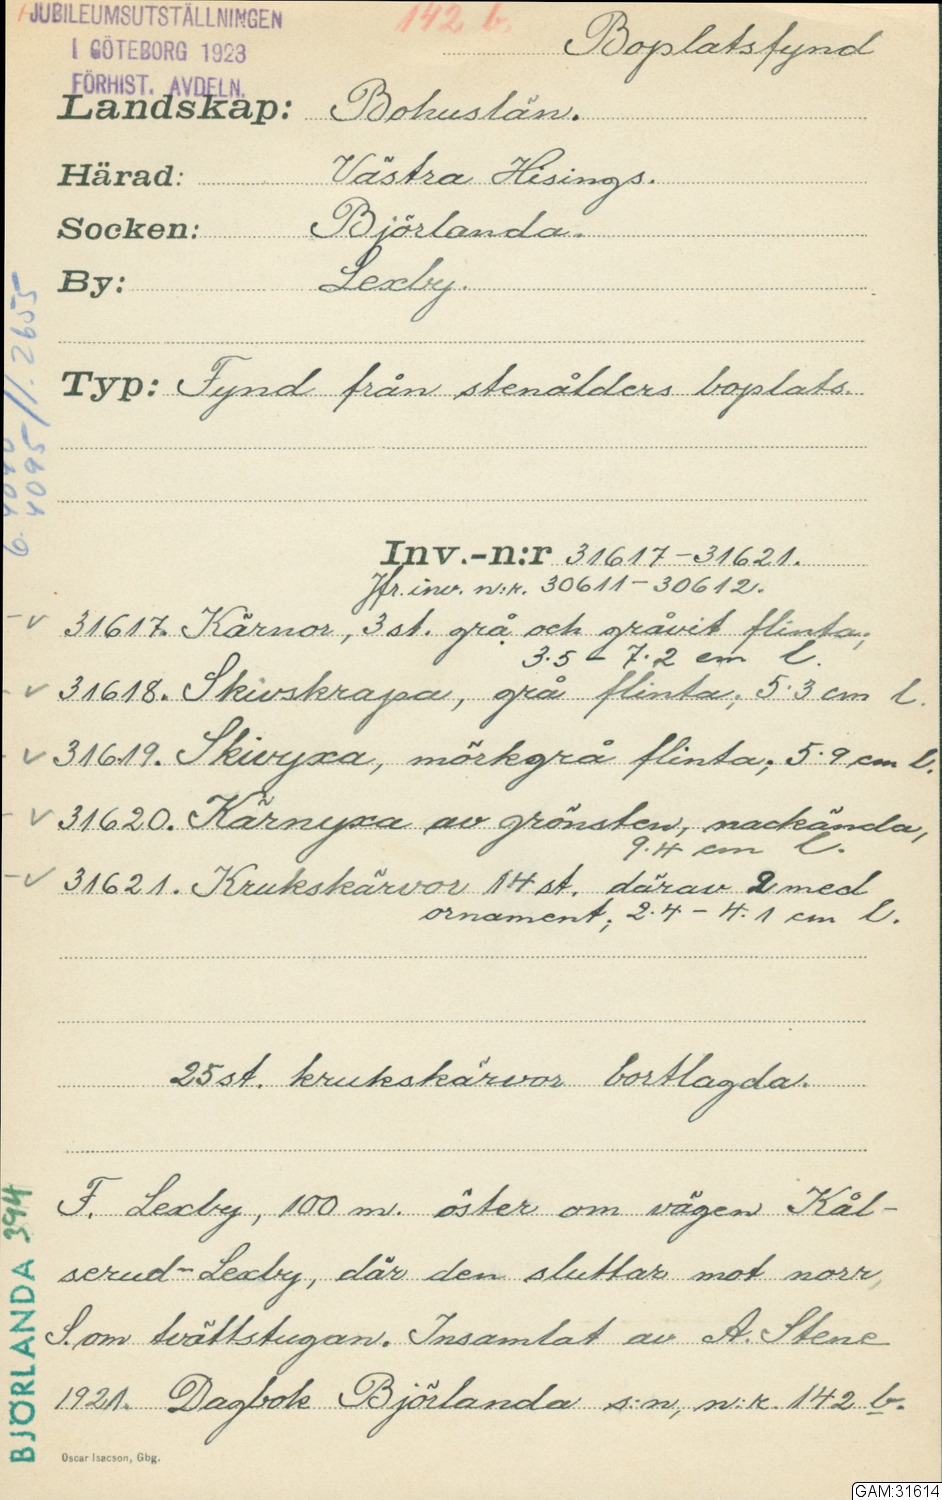 JUBILEUMSUTSTÄLLNINGEN
I GÖTEBORG 1923
FÖRHIST. AVDELN.
142 b.
Boplatsfynd
Landskap: Bohuslän.
Härad: Västra Hisings.
Socken: Björlanda.
By: Lexby.
4095//.2655
Typ: Fynd från stenålders boplats.
Inv.-n:r 31617-31621.
Jfr. inv. n:r. 30611-30612.
v 31617. Kärnor, 3 st. grå och gråvit flinta;
3.5 - 7.2 cm l.
v 31618. Skivskrapa, grå flinta; 5.3 cm l.
v 31619. Skivyxa, mörkgrå flinta; 5.9 cm l.
v 31620. Kärnyxa av grönsten, nackända,
9.4 cm l.
v 31621. Krukskärvor 14 st. därav 2 med
ornament; 2.4 - 4.1 cm l.
25 st. krukskärvor bortlagda.
F. Lexby, 100 m. öster om vägen Kål-
serud-Lexby, där den sluttar mot norr,
S. om tvättstugan. Insamlat av A. Stene
1921. Dagbok Björlanda s:n, n:r. 142 b.
BJÖRLANDA 394
Oscar Isacson, Gbg.
GAM:31614